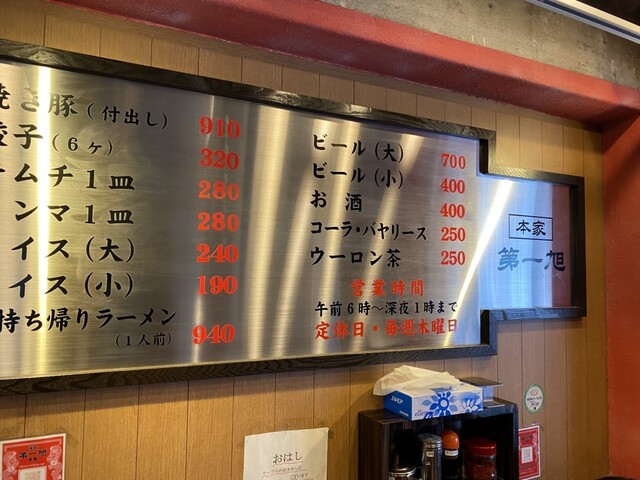 焼き豚(付出し) 910
餃子(6ヶ) 320
ムチ1皿 280
ンマ1皿 280
イス(大) 240
イス(小) 190
持ち帰りラーメン
(1人前) 940
ビール(大) 700
ビール(小) 400
お酒 400
コーラ・バヤリース 250
ウーロン茶 250
営業時間
午前6時〜深夜1時まで
定休日・毎週木曜日
本家
第一旭
第一旭
おはし